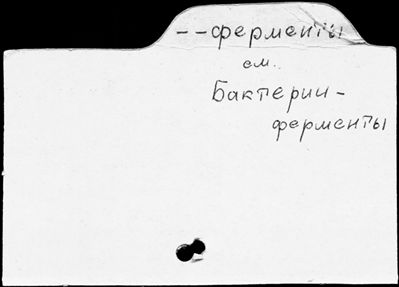 --ферменты
см.
Бактерии-
ферменты